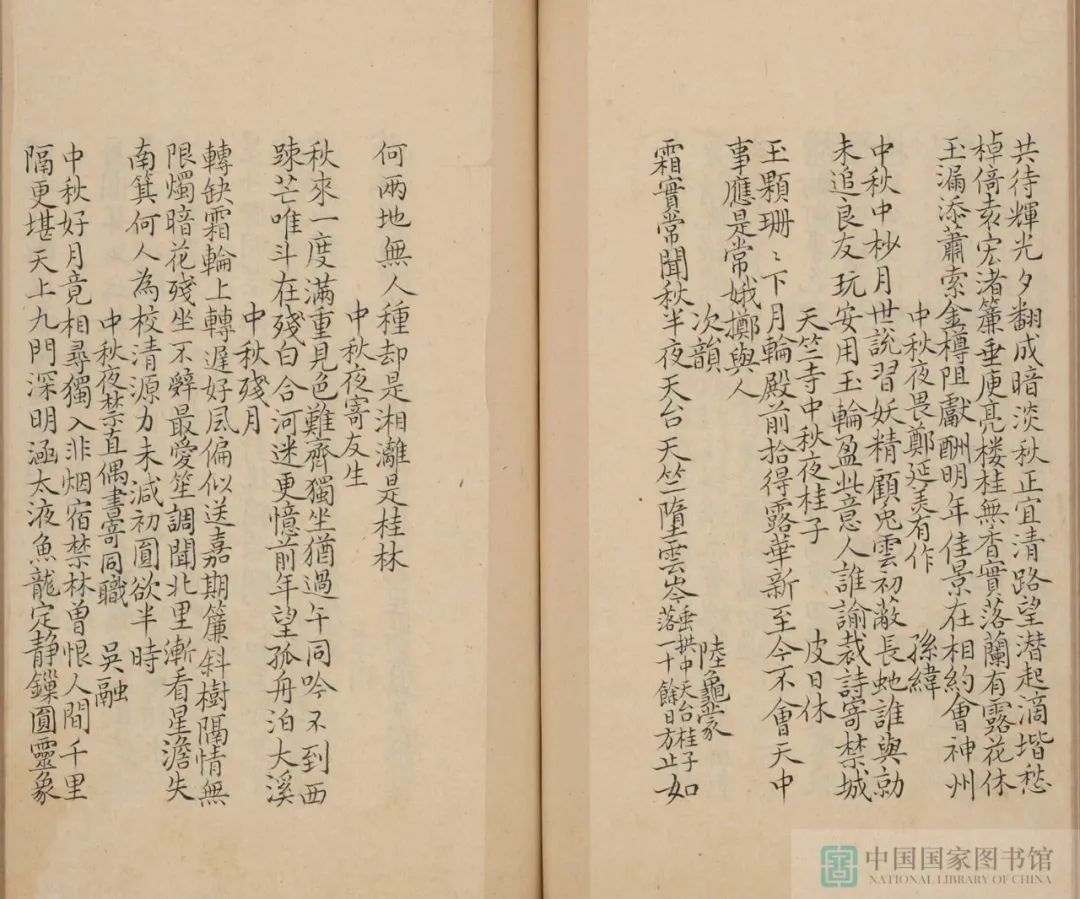 共待輝光夕翻成暗淡秋正宜清路望潜起滴堦愁
棹倚袁宏渚簾垂庾亮楼桂無香實落蘭有露花休
玉漏添蕭索金樽阻獻酬明年佳景在相約會神州
中秋夜畏鄭延美有作 孫緯
中秋中杪月世說習妖精顧兔雲初蔽長虵誰與勍
未追良友玩安用玉輪盈此意人誰諭裁詩寄禁城
天竺寺中秋夜桂子 皮日休
玉顆珊〻下月輪殿前拾得露華新至今不會天中
事應是常娥擲與人
次韻 陸龜蒙
霜實常聞秋半夜天台天竺墮雲岑垂拱中天台桂子落一十餘日方止如
何兩地無人種却是湘灕是桂林
中秋夜寄友生
秋來一度滿重見色難齊獨坐猶過午同吟不到西
踈芒唯斗在殘白合河迷更憶前年望孤舟泊大溪
中秋殘月
轉缺霜輪上轉遲好風偏似送嘉期簾斜樹隔情無
限燭暗花殘坐不辤最愛笙調聞北里漸看星澹失
南箕何人為校清源力未減初圓欲半時
中秋夜禁直偶書寄同職 吳融
中秋好月竟相尋獨入非烟宿禁林曾恨人間千里
隔更堪天上九門深明涵太液魚龍定静鏁圓靈象
中国国家图书馆
NATIONAL LIBRARY OF CHINA